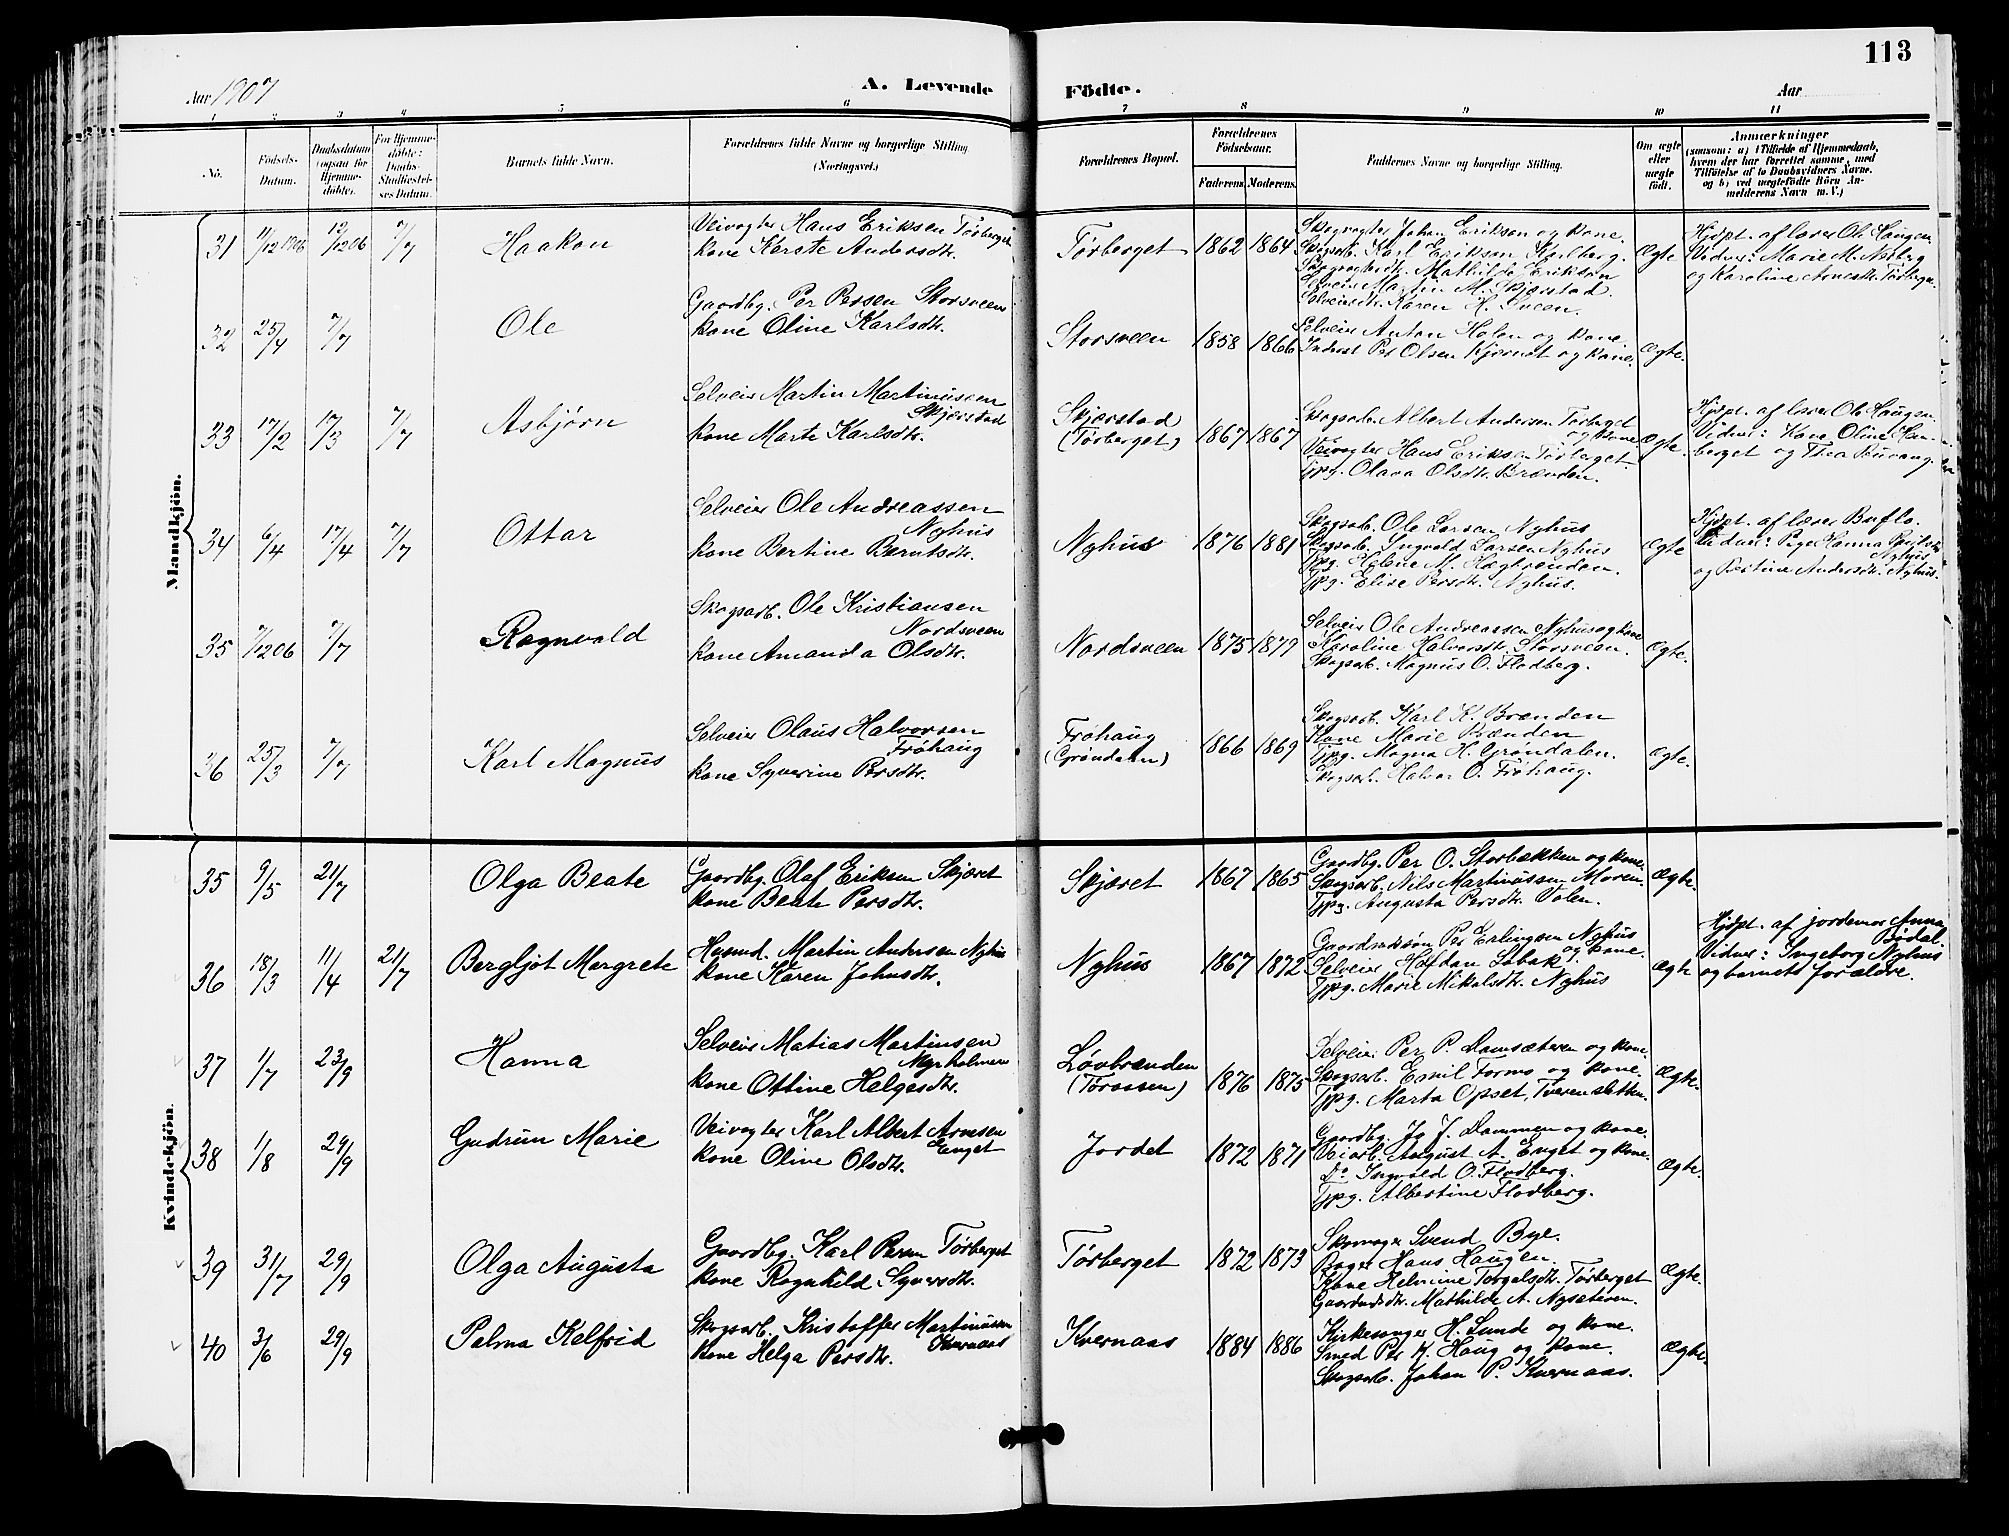 113
Aar 1907
A. Levende
Födte.
Aar
1 2 3 4 5 6 7 8 9 10 11
No.
Födsels-Datum.
Daabsdatum (ogsaa for Hjemmedøbte).
For Hjemmedøbte: Daabs-Stadfæstelses Datum.
Barnets fulde Navn.
Forældrenes fulde Navne og borgerlige Stilling
(Næringsvei.)
Forældrenes Bopæl.
Forældrenes Födselsaar.
Faderens. Moderens.
Faddernes Navne og borgerlige Stilling.
Om ægte eller uægte født.
Anmærkninger
(saasom: a) i Tilfælde af Hjemmedaab, hvem der har forrettet samme, med Tilföielse af to Daabsvidners Navne, og b) ved uægtefödte Börn Anmelderens Navn m. V.)
Mandkjön.
31 11/12 1906 12/12 06 7/7 Haakon
Veivogter Hans Eriksen Tørberget
kone Kerste Andersdtr.
Tørberget 1862 1864
Skogvogter Johan Eriksen og kone.
Skogsarb. Karl Eriksen Karlberg.
Skogvogterdtr. Mathilde Eriksen
Selveier Martin M. Skjærstad.
Selveierdtr. Karen H. Sveen.
Ægte
Hjdpt. af lærer Ole Haugen.
Vidner: Marie M. Nyberg
og Karoline Arnesdtr. Tørberget.
32 25/4 7/7 Ole
Gaardbg. Per Persen Storsveen
kone Oline Karlsdtr.
Storsveen 1858 1866
Selveier Anton Holen og kone.
Inderst Per Olsen Kjernet og kone.
Ægte.
33 17/2 17/3 7/7 Asbjørn
Selveier Martin Martinussen
Skjærstad
kone Marte Karlsdtr.
Skjærstad
(Tørberget) 1867 1867
Skogsarb. Albert Andersen Tørberget
og kone
Veivogter Hans Eriksen Tørberget.
Tjpg. Olava Olsdtr. Brænden.
Ægte.
Hjdpt. af lærer Ole Haugen.
Vidner: Kone Oline Hanberget og Thea Buvang.
34 6/4 17/4 7/7 Ottar
Selveier Ole Andreassen
Nyhus
kone Bertine Berntsdtr.
Nyhus 1876 1881
Skogsarb. Ole Larsen Nyhus
Skogsarb. Ingvald Larsen Nyhus
Tjpg. Helene M. Hægbrenden.
Tjpg. Elise Persdtr. Nyhus.
Ægte
Hjdpt. af lærer Buflo.
Vidner: Pige Hanna
Nyhus
og Bertine Andersdtr. Nyhus.
35 7/12 06 7/7 Ragnvald
Skogsarb. Ole Kristiansen
Nordsveen
kone Amanda Olsdtr.
Nordsveen 1875 1879
Selveier Ole Andreassen Nyhus og kone
Karoline Halvorsdtr. Storsveen.
Skogsarb. Magnus O. Flodberg.
Ægte.
36 25/3 7/7 Karl Magnus
Selveier Olaus Halvorsen
Frøhaug
kone Syverine Persdtr.
Frøhaug
(Grøndalen) 1866 1869
Skogsarb. Karl K. Brænden
Kone Marie Brænden
Tjpg. Magna H. Grøndalen.
Skogsarb. Halvor O. Frøhaug.
Ægte.
Kvindekjön.
35 9/5 21/7 Olga Beate
Gaardbg. Olaf Eriksen Skjæret
kone Beate Persdtr.
Skjæret 1867 1865
Gaardbg. Per O. Storbækken og kone.
Skogsarb. Nils Martinussen Moren.
Tjpg. Augusta Persdtr. Volen.
Ægte.
36 18/3 11/4 21/7 Bergljot Margrete
Husmd. Martin Andersen Nyhus
kone Karen Johnsdtr.
Nyhus 1867 1872
Gaardmdssøn Per Erlingsen Nyhus
Selveier Halfdan Løbak og kone.
Tjpg. Marie Mikalsdtr. Nyhus
Ægte
Hjdpt. af jordemor Anna
Bødal.
Vidner: Ingeborg Nyhus
og barnets forældre.
37 1/7 23/9 Hanna
Selveier Matias Martinsen
Myrholmen
kone Ottine Helgesdtr.
Løvbrenden
(Toraasen) 1876 1875
Selveier Per P. Damsæteren og kone.
Skogsarb. Emil Formo og kone.
Tjpg. Marta Opset, Tverensletten.
Ægte.
38 1/8 29/9 Gudrun Marie
Veivogter Karl Albert Arnesen
Enget
kone Oline Olsdtr.
Jordet 1872 1871
Gaardbg. Jo J. Dammen og kone.
Veiarb. August A. Enget og kone.
Do Ingvald O. Flodberg.
Tjpg. Albertine Flodberg.
Ægte.
39 31/7 29/9 Olga Augusta
Gaardbg. Karl Persen Tørberget
kone Ragnhild Syversdtr.
Tørberget 1872 1873
Skomager Svend Bye.
Bager Hans Haugen.
Kone Helmine Torgalsdtr. Tørberget
Gaardmdsdtr. Mathilde A. Nysæteren.
Ægte.
40 3/6 29/9 Palma Kelfrid
Skogsarb. Kristoffer Martinussen
Kvernaas
kone Helga Persdtr.
Kvernaas 1884 1886
Kirkesanger H. Lunde og kone.
Smed Per K. Haug og kone.
Skogsarb. Johan P. Kvernaas.
Ægte.